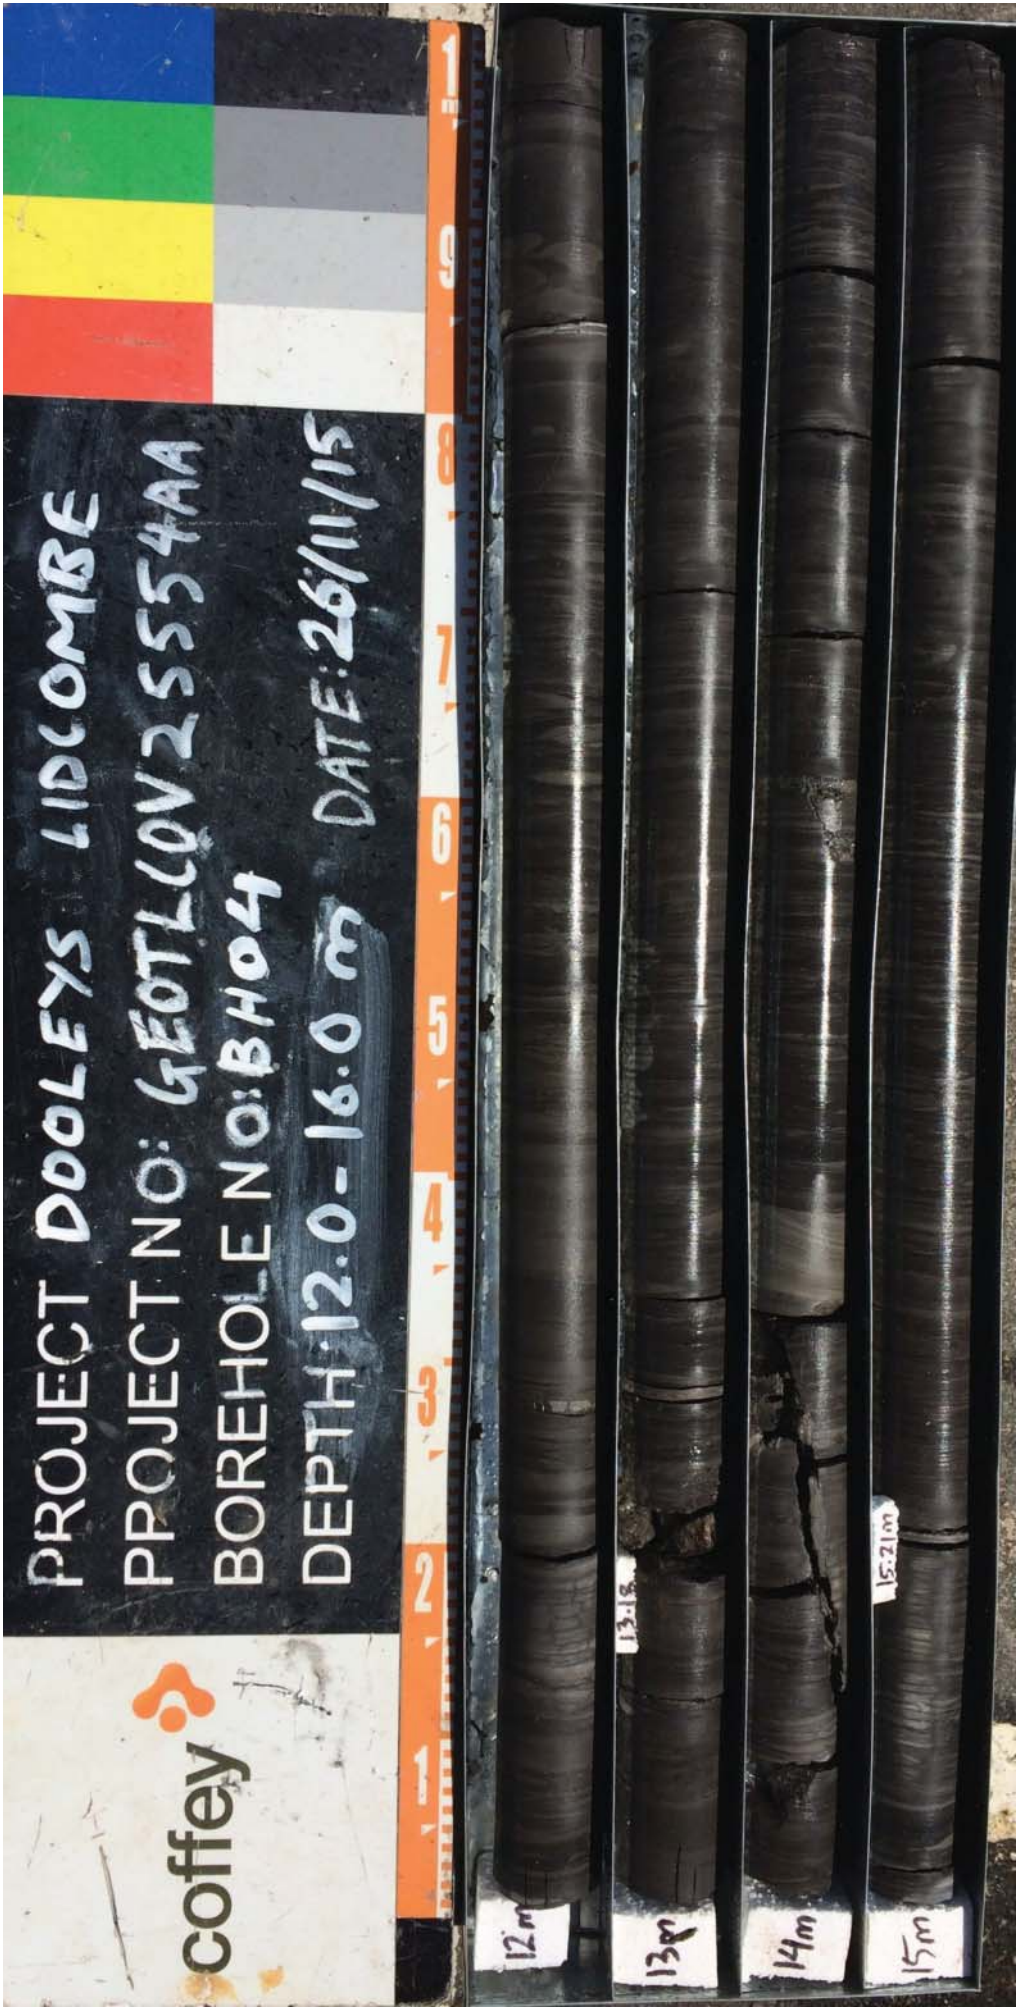 PROJECT DOOLEYS LIDCOMBE
PPOJECT NO: GEOTLCOV25554AA
BOREHOLE NO: BH04
DEPTH: 12.0 - 16.0 m DATE: 26/11/15
coffey
1 2 3 4 5 6 7 8 9 1m
12m
13m
13.18
14m
15m
15.21m